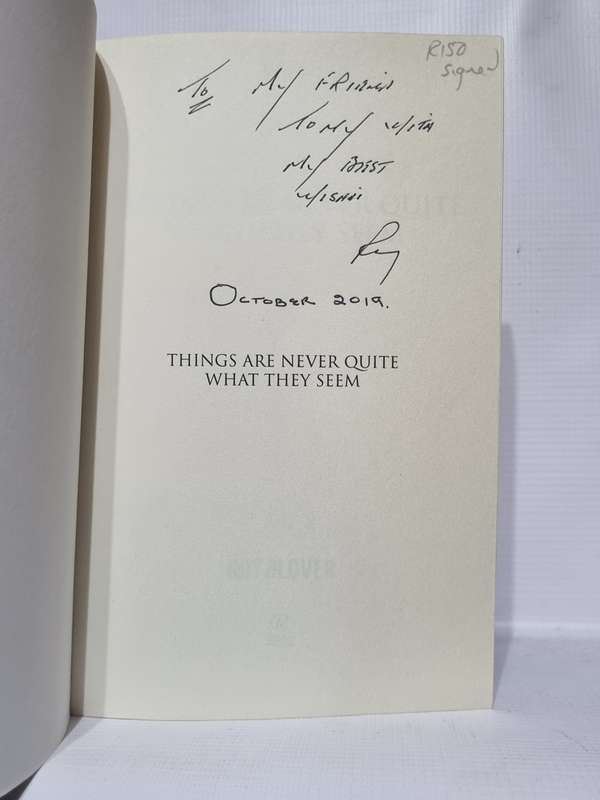 R150
signed
To My FRIEND
TOMY WITH
My BEST
WISHES
Ray
OCTOBER 2019.
THINGS ARE NEVER QUITE
WHAT THEY SEEM